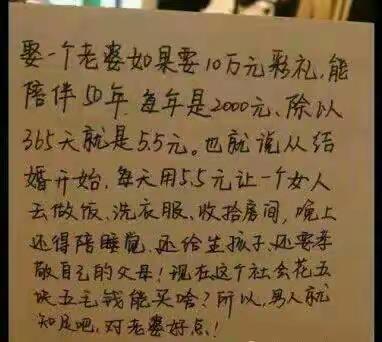 娶一个老婆如果要10万元彩礼,能
陪伴50年,每年是2000元、除以
365天就是5.5元。也就说从结
婚开始,每天用5.5元让一个女人
去做饭、洗衣服、收拾房间,晚上
还得陪睡觉,还给生孩子,还要孝
敬自己的父母!现在这个社会花五
块五毛钱能买啥?所以,男人就
知足吧,对老婆好点!